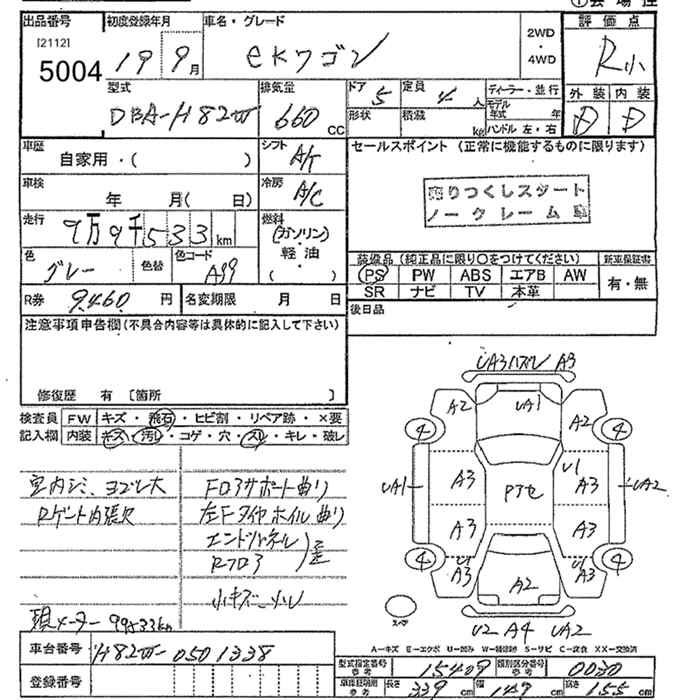 ①会場控
出品番号 初度登録年月 車名・グレード 2WD・4WD 評価点
[2112]
5004 19 9月 eKワゴン R小
型式 排気量 ドア 定員 ディーラー・並行 外装 内装
DBA-H82W 660 CC 5 4 人 モデル年式 年 D D
形状 積載 kg ハンドル 左・右
車歴 自家用・( ) シフト A/T セールスポイント (正常に機能するものに限ります)
車検 年 月( 日) 冷房 A/C 売りつくしスタート
ノークレーム
走行 9万9千533km 燃料 (ガソリン)・軽油・( )
色 グレー 色替 色コード A99 装備品 (純正品に限り○をつけてください) 新車保証書
PS PW ABS エアB AW 有・無
SR ナビ TV 本革
R券 9460 円 名変期限 月 日 後日品
注意事項申告欄 (不具合内容等は具体的に記入して下さい)
修復歴 有 [箇所 ]
検査員 FW キズ・飛石・ヒビ割・リペア跡・×要
記入欄 内装 キズ・汚レ・コゲ・穴・スレ・キレ・破レ
室内シミ、ヨゴレ大 Fロアサポート曲り
Rゲート内張欠 左Fタイヤホイル曲り
エンドパネル
Rフロア 歪
小キズ・凹
現メーター 99533km
UA3ハズレ A3
A2 UA1 A2
4 4
UA1 A3 Pアセ U1 A3 UA2
A3 A3
4 4
U1 A3 A2 U1 A3
スペア
U2 A4 UA2
A-キズ E-エクボ U-凹ミ W-補修跡 S-サビ C-腐食 XX-交換済
車台番号 H82W-0501338
登録番号
型式指定番号 参考 15409 類別区分番号 参考 0030
車検証明用 参考 長さ 339 cm 幅 147 cm 高さ 155 cm